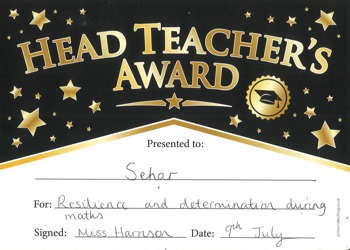 HEAD TEACHER'S
AWARD
Presented to:
Sehar
For: Resilience and determination during
maths
Signed: Miss Harrison Date: 9th July